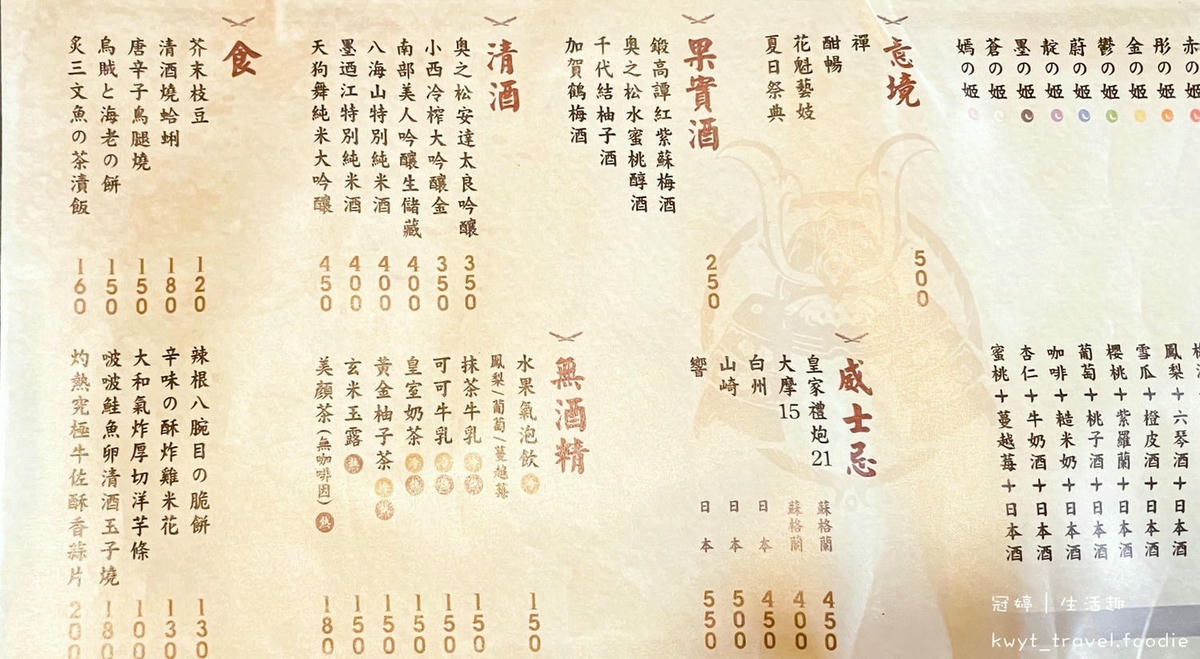 赤の姬
彤の姬
金の姬
鬱の姬
蔚の姬
靛の姬
墨の姬
蒼の姬
嫣の姬
鳳梨+六琴酒+日本酒
雪瓜+橙皮酒+日本酒
櫻桃+紫羅蘭+日本酒
葡萄+桃子酒+日本酒
咖啡+糙米奶+日本酒
杏仁+牛奶酒+日本酒
蜜桃+蔓越莓+日本酒
忘境
禪
酣暢
花魁藝妓
夏日祭典
500
威士忌
皇家禮炮21 蘇格蘭 450
大摩15 蘇格蘭 400
白州 日本 450
山崎 日本 500
響 日本 550
果實酒
鍛高譚紅紫蘇梅酒
奧之松水蜜桃醇酒
千代結柚子酒
加賀鶴梅酒
250
清酒
奧之松安達太良吟釀 350
小西冷榨大吟釀金 350
南部美人吟釀生儲藏 400
八海山特別純米酒 400
墨迺江特別純米酒 400
天狗舞純米大吟釀 450
無酒精
水果氣泡飲 150
鳳梨/葡萄/蔓越莓
抹茶牛乳 150
可可牛乳 150
皇室奶茶 150
黃金柚子茶 150
玄米玉露 熱 150
美顏茶(無咖啡因) 熱 180
食
芥末枝豆 120
清酒燒蛤蜊 180
唐辛子鳥腿燒 150
烏賊と海老の餅 150
炙三文魚の茶漬飯 160
辣根八腕目の脆餅 130
辛味の酥炸雞米花 130
大和氣炸厚切洋芋條 100
啵啵鮭魚卵清酒玉子燒 180
灼熱究極牛佐酥香蒜片 200
冠婷|生活趣
kwyt_travel.foodie